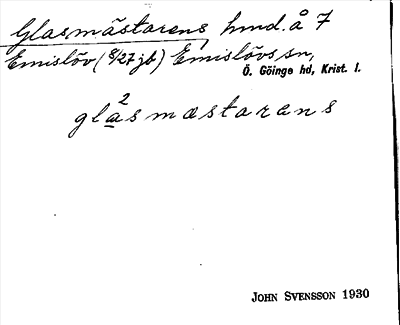 Glasmästarens hmd. å 7
Emislöv (8/27 jb) Emislövs sn,
Ö. Göinge hd, Krist. l.
2
glasmæstarens
JOHN SVENSSON 1930